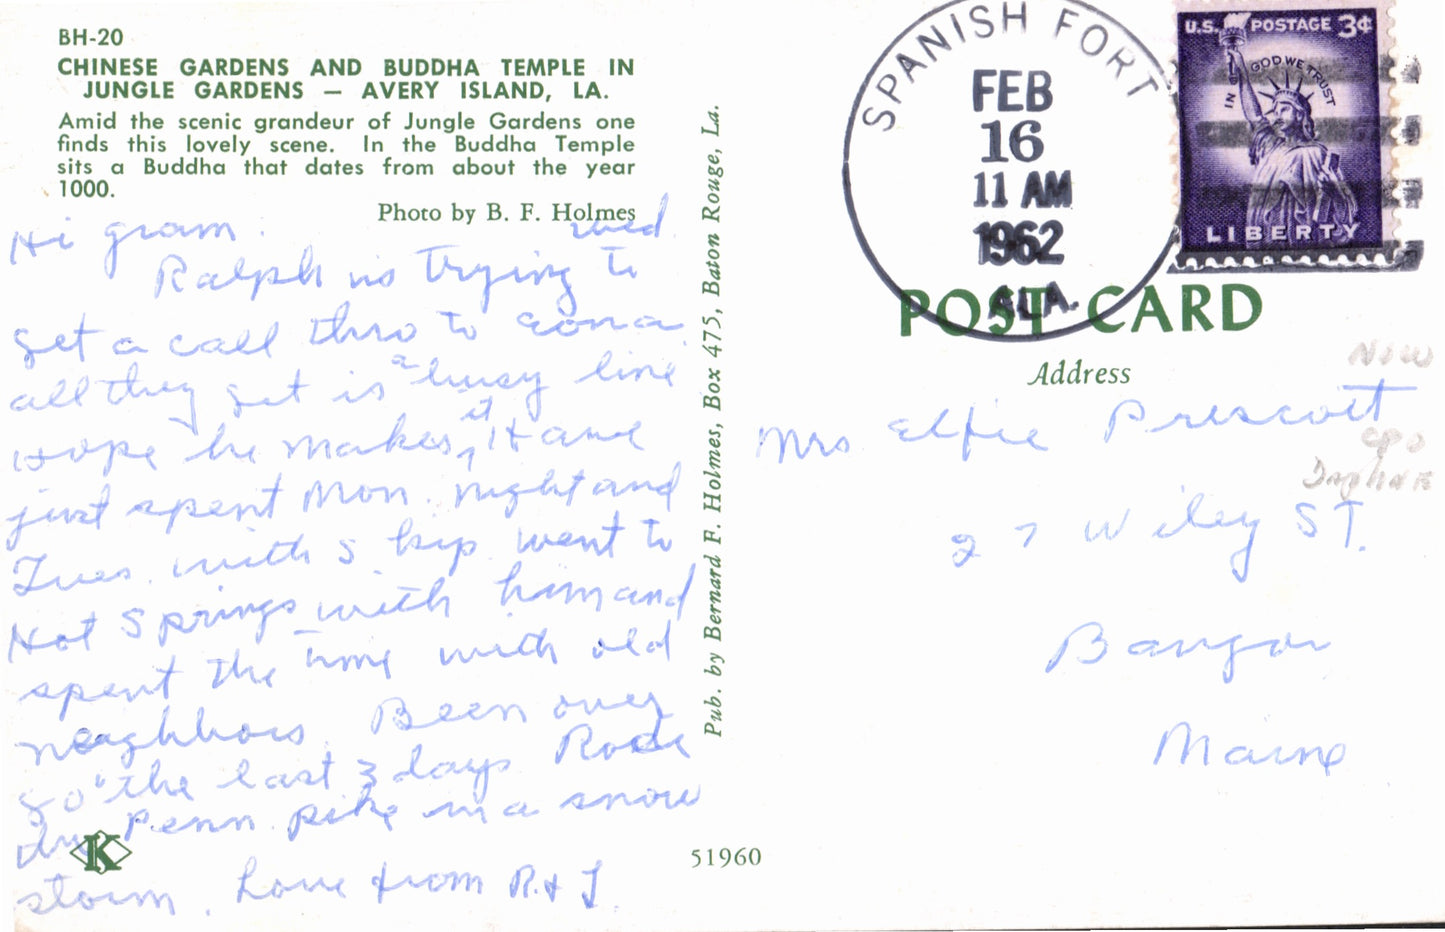 BH-20
CHINESE GARDENS AND BUDDHA TEMPLE IN
JUNGLE GARDENS — AVERY ISLAND, LA.
Amid the scenic grandeur of Jungle Gardens one
finds this lovely scene. In the Buddha Temple
sits a Buddha that dates from about the year
1000.
Photo by B. F. Holmes
Wed.
Hi gram.
Ralph is trying to
get a call thro to
all they get is a busy line
Hope he makes it. Have
just spent Mon. night and
Tues. with Skip. went to
Hot Springs with him and
spent the time with old
neighbors. Been over
80 the last 3 days Rode
the Penn pike in a snow
storm. Love from R. & J.
K
Pub. by Bernard F. Holmes, Box 475, Baton Rouge, La.
51960
SPANISH FORT
FEB
16
11 AM
1962
ALA.
U.S. POSTAGE 3¢
IN GOD WE TRUST
LIBERTY
POST CARD
Address
Now
Mrs Elfie Prescott
CPO
Daphne
27 Wiley ST.
Bangor
Maine